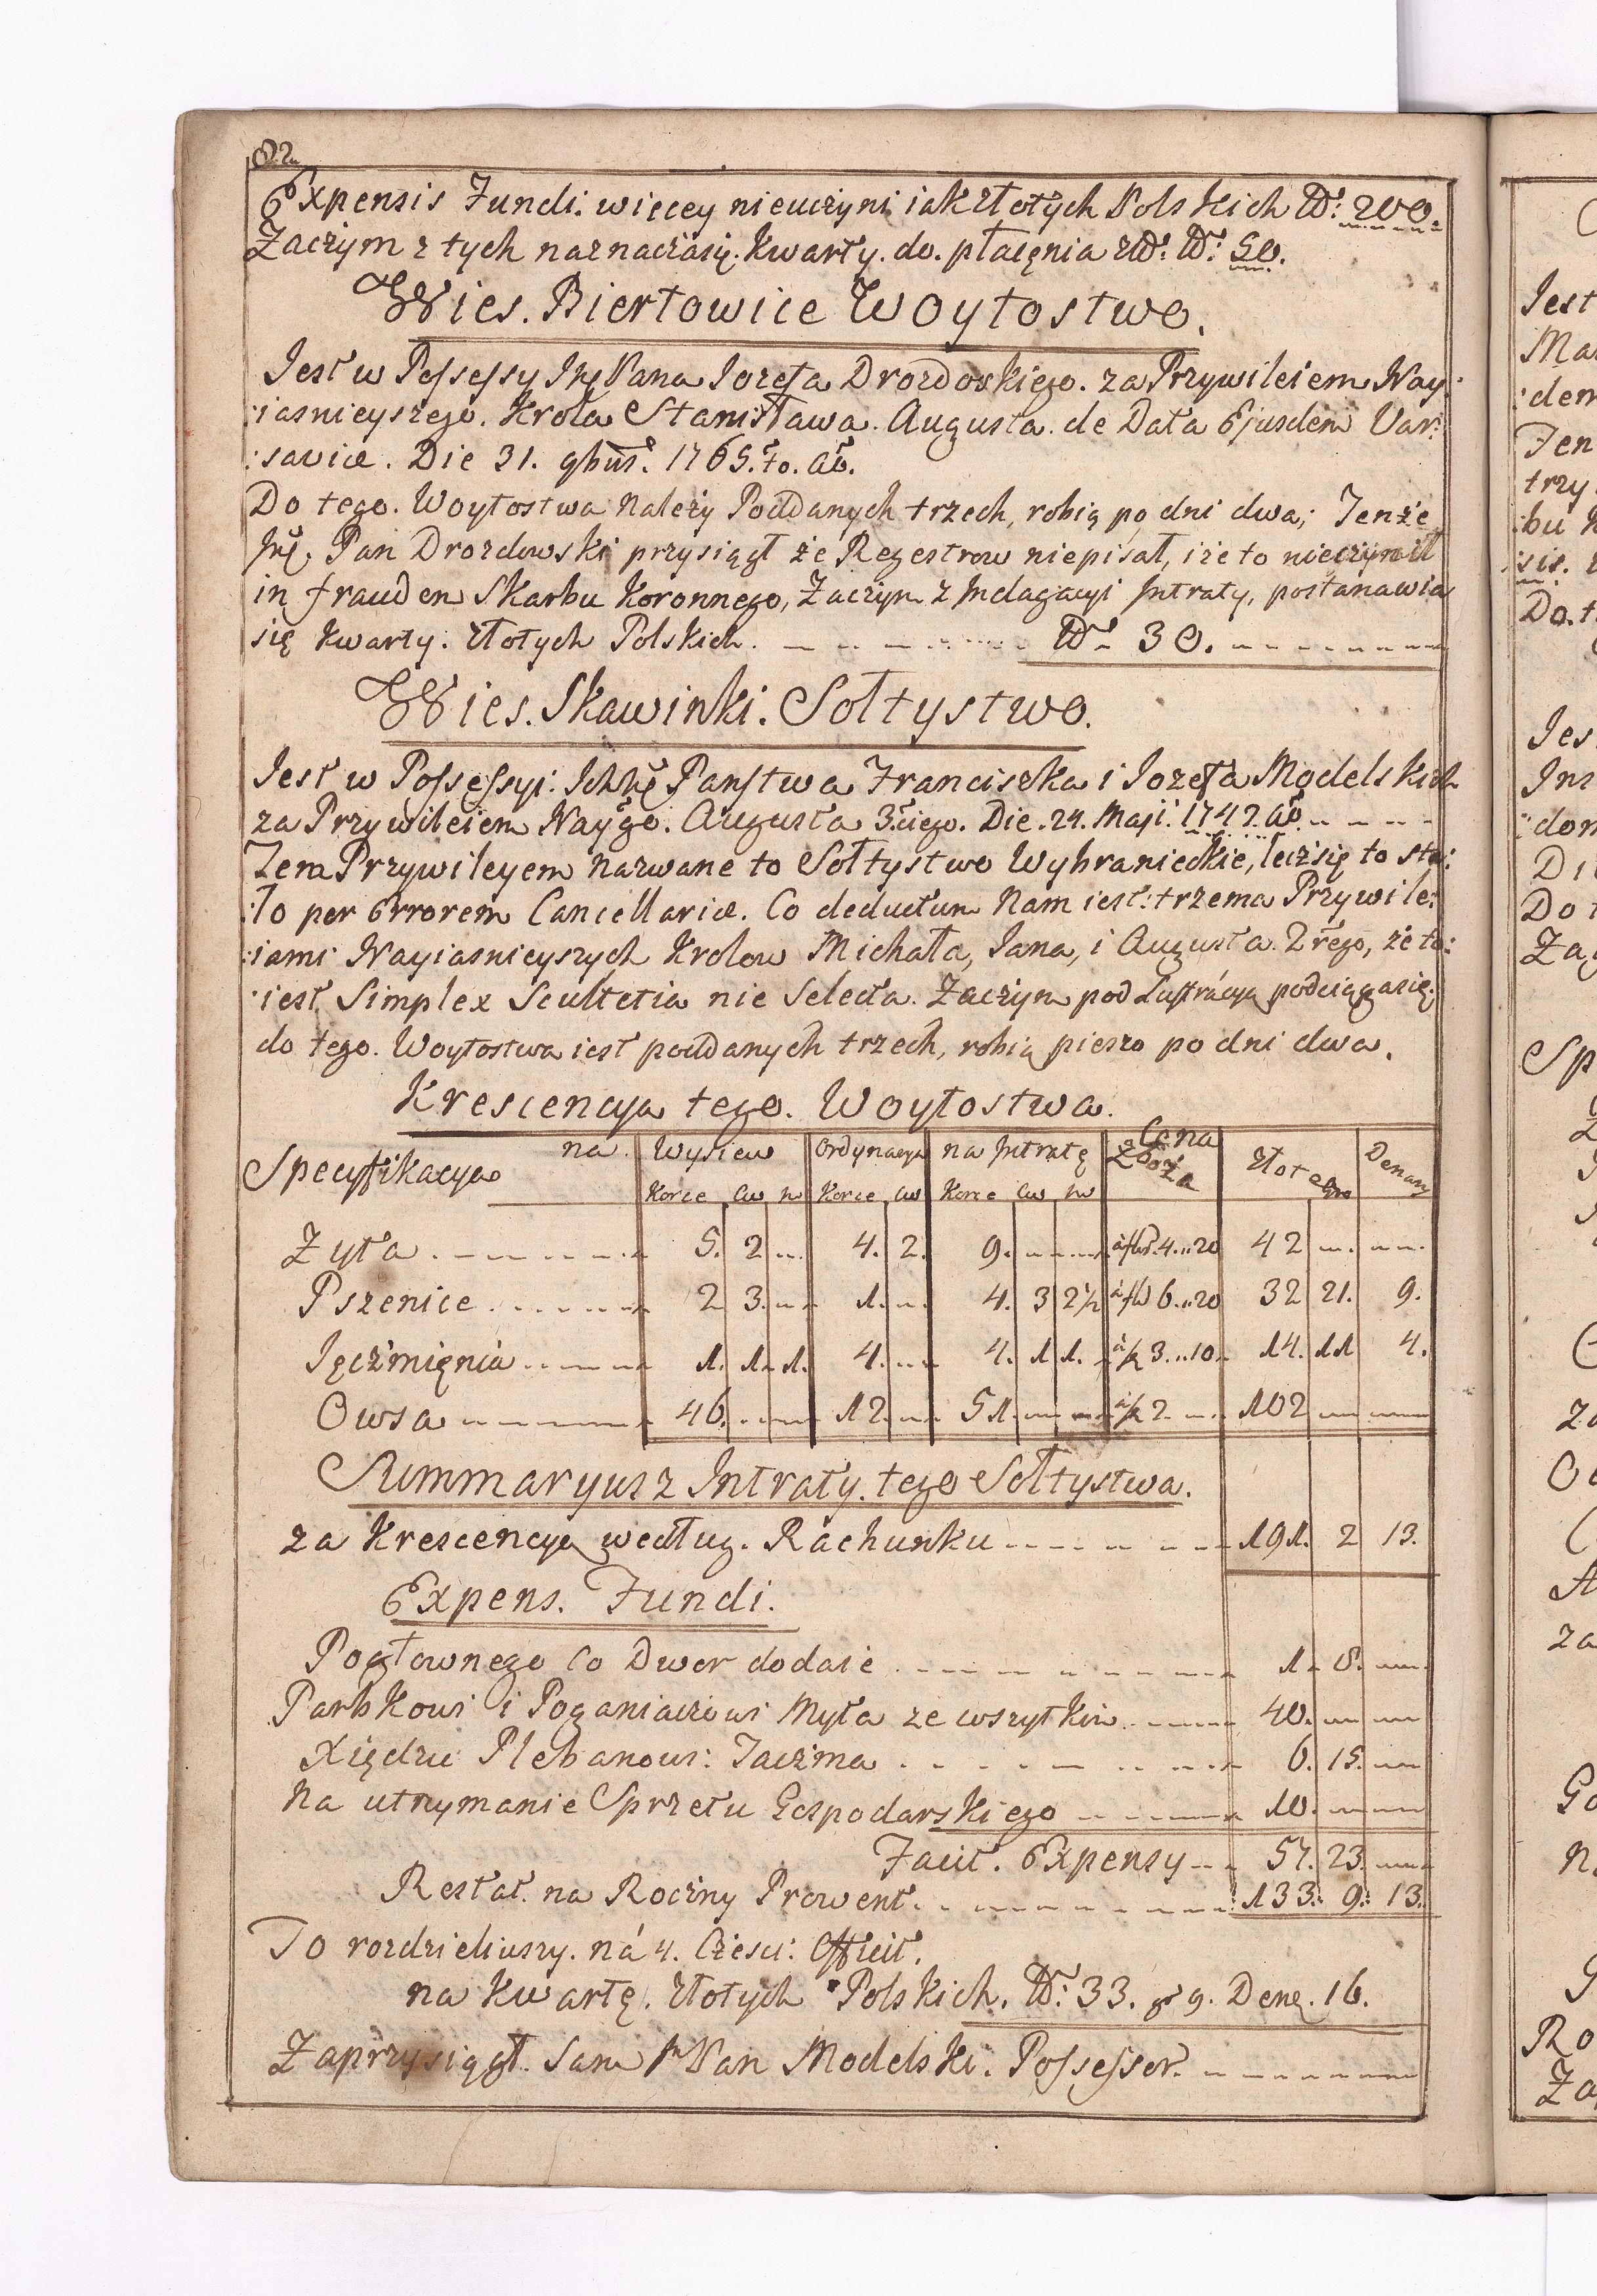 82.
Expensis Fundi. więcey nieuczyni iak Złotych Polskich Nro: 200.
Zaczym z tych naznacza się. Kwarty. do. płacęnia zł: Nro: 50.
Wies. Biertowice Woytostwo.
Jest w Possessyi Jmę Pana Jozefa Drozdowskiego. za Przywileiem Nay:
:iasnieyszego. Krola Stanisława. Augusta. de Data Ejusdem Var:
:saviæ. Die 31. 9bris. 1765.to. ao.
Do tego. Woytostwa Nalezy Poddanych trzech, robią po dni dwa; Tenże
Jmę. Pan Drozdowski przysiągł że Regestrow niepisał, iże to nieczynił
in fraudem Skarbu Koronnego, Zaczym z Indagacyi Intraty, postanawia
się Kwarty. Złotych Polskich. 30.
Wies. Skawinki. Sołtystwo.
Jest w Possessyi: Ichmę Państwa Franciszka i Jozefa Modelskich
za Przywileiem Naygo. Augusta 3.ciego. Die. 24. Maji. 1747. ao.
Tem Przywileyem nazwane to Sołtystwo Wybranieckie, lecz się to sta:
:ło per Errorem Cancellariæ. Co deductum Nam iest: trzema Przywile:
:iami Nayiasnieyszych Krolow Michała, Jana, i Augusta 2rego, że to:
:iest Simplex Scultetia nie Selecta. Zaczym pod Lustracyą podciąga się.
do tego. Woytostwa iest poddanych trzech, robią pieszo po dni dwa.
Krescencya tego. Woytostwa.
Specyfikacya na Wysiew Ordynacya na Intratę Cena Zboża Złote gro Denary
Korce Cw Korce Cw Korce Cw
Zyta 5. 2 4. 2. 9. 4..20 42
Pszenice 2 3. 1. 4. 3 2½ 6..20 32 21. 9.
Jęczmięnia 1. 1. 1. 4. 4. 1 1. 3..10 14. 11 4.
Owsa 46. 12. 51. 2 102
Summaryusz Intraty. tego Sołtystwa.
za Krescencyą według. Rachunku 191. 2 13.
Expens. Fundi.
Pogłownego co Dwor dodaie 1. 8.
Parobkowi i Poganiaczowi Myta ze wszytkim 40.
Xiędzu Plebanowi: Taczma 6. 15.
Na utrzymanie Sprzetu Gospodarskiego 10.
Facit. Expensy 57. 23.
Restat. na Roczny Prowent. 133. 9. 13.
To rozdzieliwszy. ná 4. Czesci: Efficit.
na Kwartę. Złotych Polskich. Nro: 33. gr 9. Dena. 16.
Zaprzysiągł. Sam Jm Pan Modelski. Possessor.